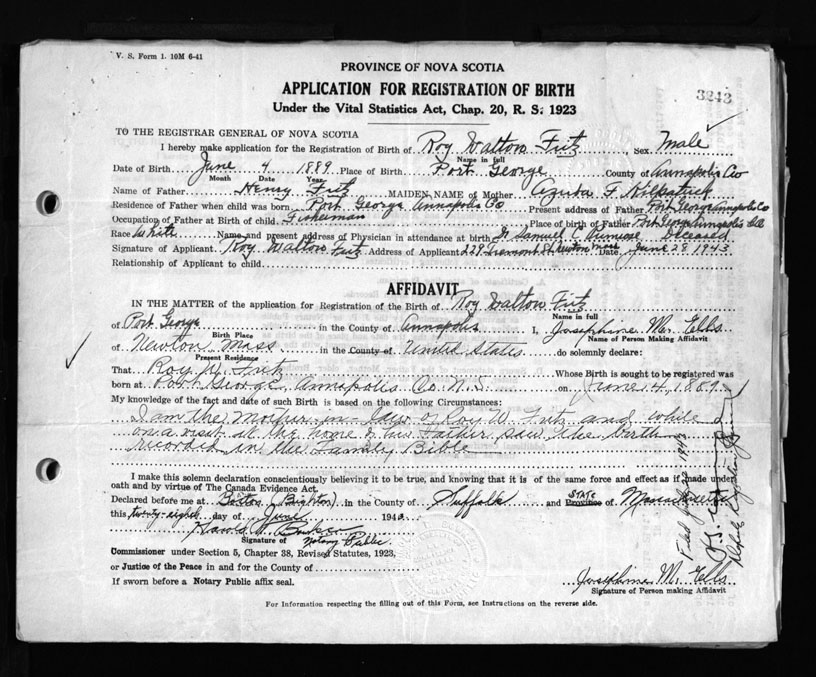 V. S. Form 1. 10M 6-41
PROVINCE OF NOVA SCOTIA
APPLICATION FOR REGISTRATION OF BIRTH
3243
Under the Vital Statistics Act, Chap. 20, R. S. 1923
TO THE REGISTRAR GENERAL OF NOVA SCOTIA
I hereby make application for the Registration of Birth of Roy Walton Fritz Sex Male
Name in full
Date of Birth June 4 1889 Place of Birth Port George County of Annapolis Co
Month Date Year
Name of Father Henry Fritz MAIDEN NAME of Mother F Kilpatrick
Residence of Father when child was born Port George Annapolis Co Present address of Father Port George Annapolis Co
Occupation of Father at Birth of child Fisherman Place of birth of Father Port George Annapolis Co
Race White Name and present address of Physician in attendance at birth Dr Samuel C Primrose Deceased
Signature of Applicant Roy Walton Fritz Address of Applicant 229 Tremont St Newton Mass Date June 28 1943
Relationship of Applicant to child
AFFIDAVIT
IN THE MATTER of the application for Registration of the Birth of Roy Walton Fritz
Name in full
of Port George in the County of Annapolis I, Josephine M. Ells
Birth Place Name of Person Making Affidavit
of Newton Mass in the County of United States do solemnly declare:
Present Residence
That Roy W. Fritz Whose Birth is sought to be registered was
born at Port George, Annapolis Co. N.S. on June 4, 1889
My knowledge of the fact and date of such Birth is based on the following Circumstances:
I am the Mother-in-law of Roy W. Fritz and while
on a visit at the home of his Father saw the birth
recorded in the Family Bible
I make this solemn declaration conscientiously believing it to be true, and knowing that it is of the same force and effect as if made under
oath and by virtue of The Canada Evidence Act.
Declared before me at Boston (Brighton) in the County of Suffolk and STATE Province of Massachusetts
this twenty-eighth day of June 194
Harold
Signature of Notary Public
Commissioner under Section 5, Chapter 38, Revised Statutes, 1923,
or Justice of the Peace in and for the County of
If sworn before a Notary Public affix seal.
Josephine M. Ells
Signature of Person making Affidavit
For Information respecting the filling out of this Form, see Instructions on the reverse side.